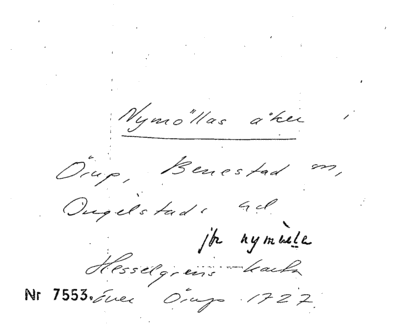 Nymöllas åker i
Örup, Benestad sn,
Ingelstads hd
jfr nymölla
Hesselgrens karta
Nr 7553. över Örup 1727.